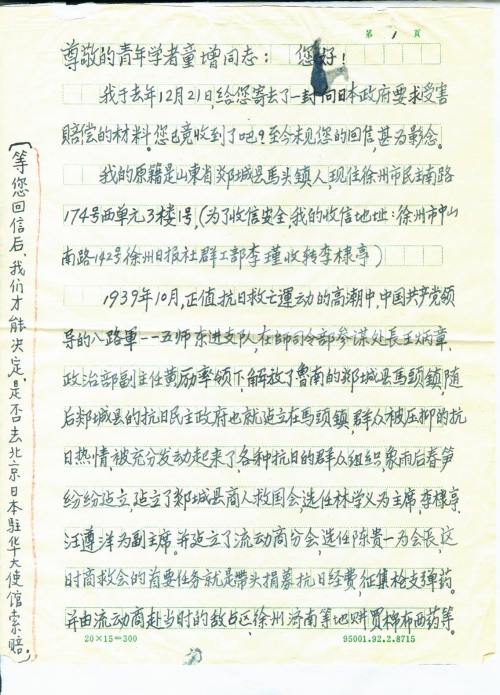 第 1 頁
尊敬的青年学者童增同志：您好！
我于去年12月21日,给您寄去了一封向日本政府要求受害
赔偿的材料。您已竟收到了吧？至今未见您的回信,甚为影念。
我的原籍是山東省郯城县馬头镇人,现住徐州市民主南路
174号西单元3楼1号,(为了收信安全,我的收信地址:徐州市中山
南路142号徐州日报社群工部李瑾收转李棣亭)
1939年10月,正值抗日救亡運动的高潮中,中国共产党领
导的八路軍一一五师东进支队,在師司令部参谋处長王炳章,
政治部副主任黄励率领下,解放了鲁南的郯城县馬頭鎮,随
后郯城县的抗日民主政府也就建立在馬頭鎮,群众被压抑的抗
日热情,被充分发动起来了,各种抗日的群众组织,象雨后春笋
纷纷建立,建立了郯城县商人救国会,选任林学义为主席,李棣亭,
汪遵洋为副主席。并建立了流动商分会,选任陈贵一为会长,这
时商救会的首要任务就是帶头捐募抗日经费,征集枪支弹药。
并由流动商赴当时的敌占区,徐州,济南等地购買棉布西药等。
20×15=300
95001.92.2.8715
(等您回信后,我们才能决定,是否去北京日本驻华大使馆索赔。)